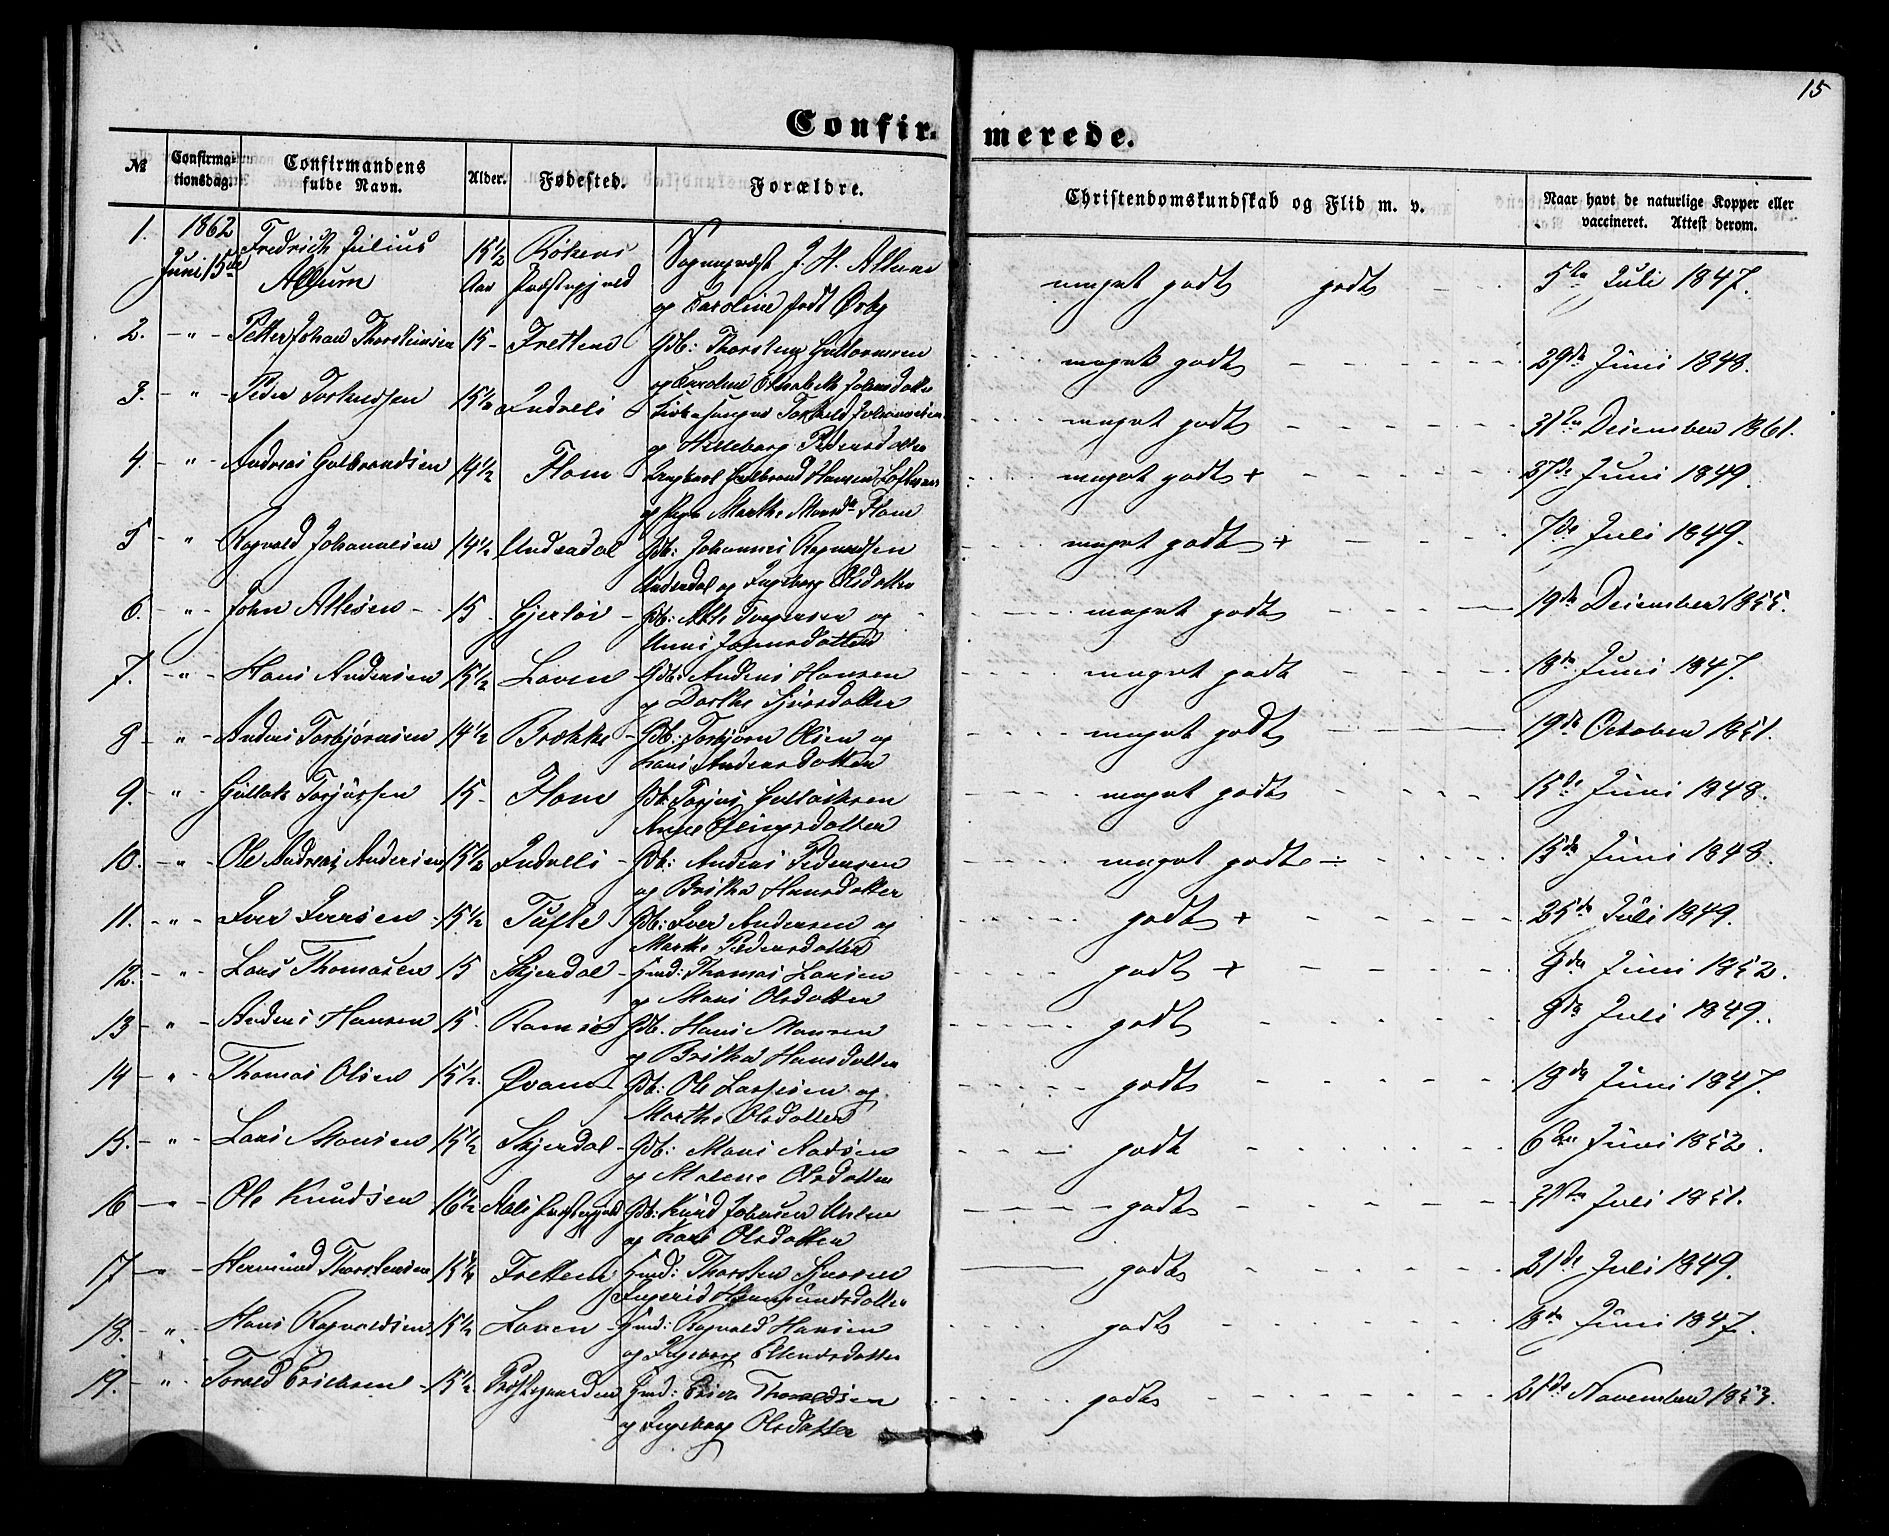 15
Confirmerede.
№ Confirmationsdag. Confirmandens fulde Navn. Alder. Fødested. Forældre. Christendomskundskab og Flid m. v. Naar havt de naturlige Kopper eller vaccineret. Attest derom.
1. 1862 Juni 15de Fredrich Julius Allum 15½ Aar Røkens Præstegjeld Sogneprest J. H. Allum og Caroline født Ørby meget godt godt 5te Juli 1847.
2. - " - Petter Johan Thorsteinsen 15 - Fretten Gdb: Thorsten Guttormsen og Caroline Elisabeth Johnsdatter meget godt 29de Juni 1848.
3. - " - Peder Torkeldsen 15½ Indreli Kirkesanger Torkeld Johannesen og Hilleborg Pedersdatter meget godt 31te December 1861.
4. - " - Andreas Gulbrandsen 14½ Flom Ungkarl Gulbrand Hansen Loftesnes og Pige Marthe Monsdr Flom meget godt + 27de Juni 1849.
5 - " Ragvald Johannesen 14½ Underdal Gdb: Johannes Ragvaldsen Underdal og Ingeborg Olsdatter meget godt + 7de Juli 1849.
6. - " - John Atlesen - 15 - Gjerløi - Gdb: Atle Torgersen og Unni Johnsdatter meget godt 19de December 1855.
7. - " - Hans Andersen 15½ Loven - Gdb: Anders Hansen og Dorthe Sjursdatter meget godt 18de Juni 1847.
8 - " - Anders Torbjørnsen 14½ Brække - Gdb: Torbjørn Olsen og Kari Andersdatter meget godt 19de October 1851.
9. - " Gullak Torjussen 15 - Flom Gdb: Torjus Gullaksen Anne Ellingsdatter meget godt 15de Juni 1848.
10. - " - Ole Andreas Andersen 15½ Indreli - Gdb: Anders Pedersen og Britha Hansdatter meget godt ÷ 15de Juni 1848.
11. - " - Iver Iversen - 15½ Tufte Gdb: Iver Andersen og Marthe Pedersdatter godt + 25de Juli 1849.
12. - " - Lars Thomasen 15 Skjerdal - Hmd: Thomas Larsen og Mari Olsdatter godt + 9de Juni 1852.
13 - " - Anders Hansen 15. Gdb. Hans Monsen og Britha Hansdatter godt 9de Juli 1849.
14 - " - Thomas Olsen 15½. Qvam - Gdb: Ole Larsen og Marthe Olsdatter godt 18de Juni 1847.
15. - " - Lars Monsen 15½ Skjerdal - Gdb: Mons Madsen og Malene Olsdatter godt 6te Juni 1852.
16 - " - Ole Knudsen 16½ Aals Præstegjeld Gdb: Knud Johnsen og Kari Olsdatter godt 31te Juli 1851.
17 - " Hermund Thorstensen 15¼ Fretten Hmd: Thorsten Sjursen Ingerid Hermundsdatter godt 21de Juli 1849.
18. - " Hans Ragvaldsen 15½ Loven - Hmd: Ragvald Hansen og Ingeborg Ellendsdatter godt 18de Juni 1847.
19. - " - Torald Ericksen - 15½. Præstegaarden Hmd: Erick Thoraldsen og Ingeborg Olsdatter godt 21de November 1853.